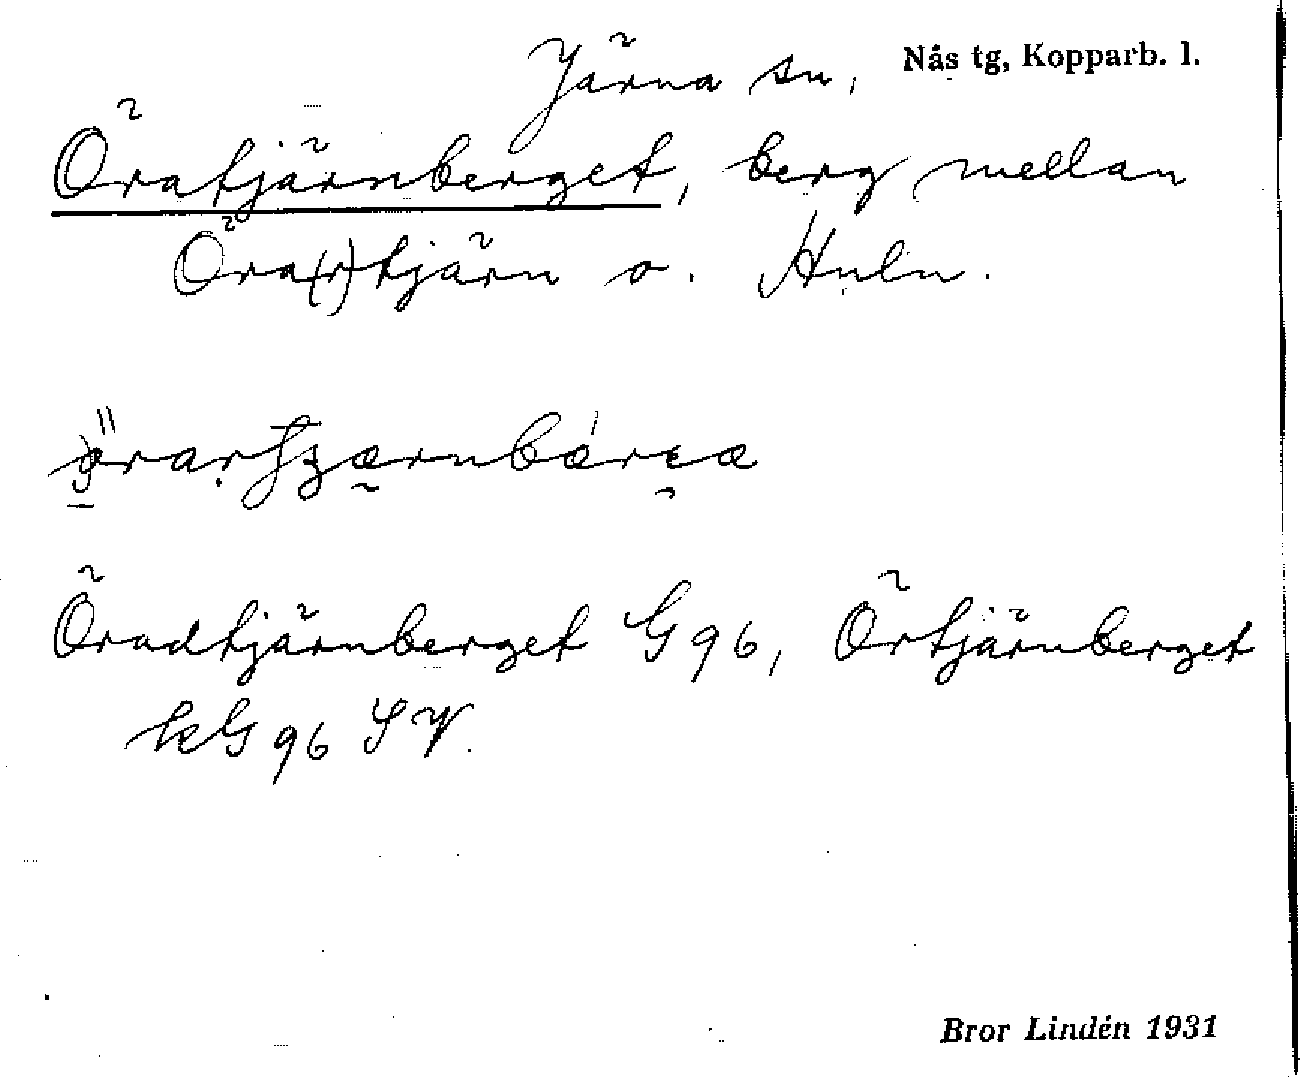 Järna sn, Nås tg, Kopparb. l.
Öratjärnberget, berg mellan
Öra(r)tjärn o. Huln.
Öradtjärnberget G 96, Örtjärnberget
kG 96 SV.
Bror Lindén 1931